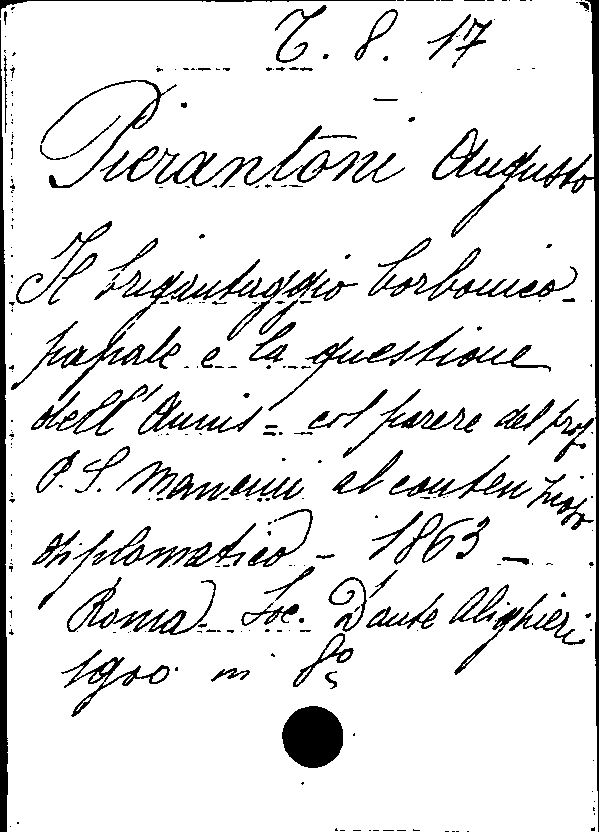 C. 8. 17
Pierantoni Augusto
Il brigantaggio borbonico-
papale e la questione
dell'Aunis = col parere del prof.
P. S. Mancini al contenzioso
diplomatico - 1863 -
Roma - Soc. Dante Alighieri
1900 in 8º